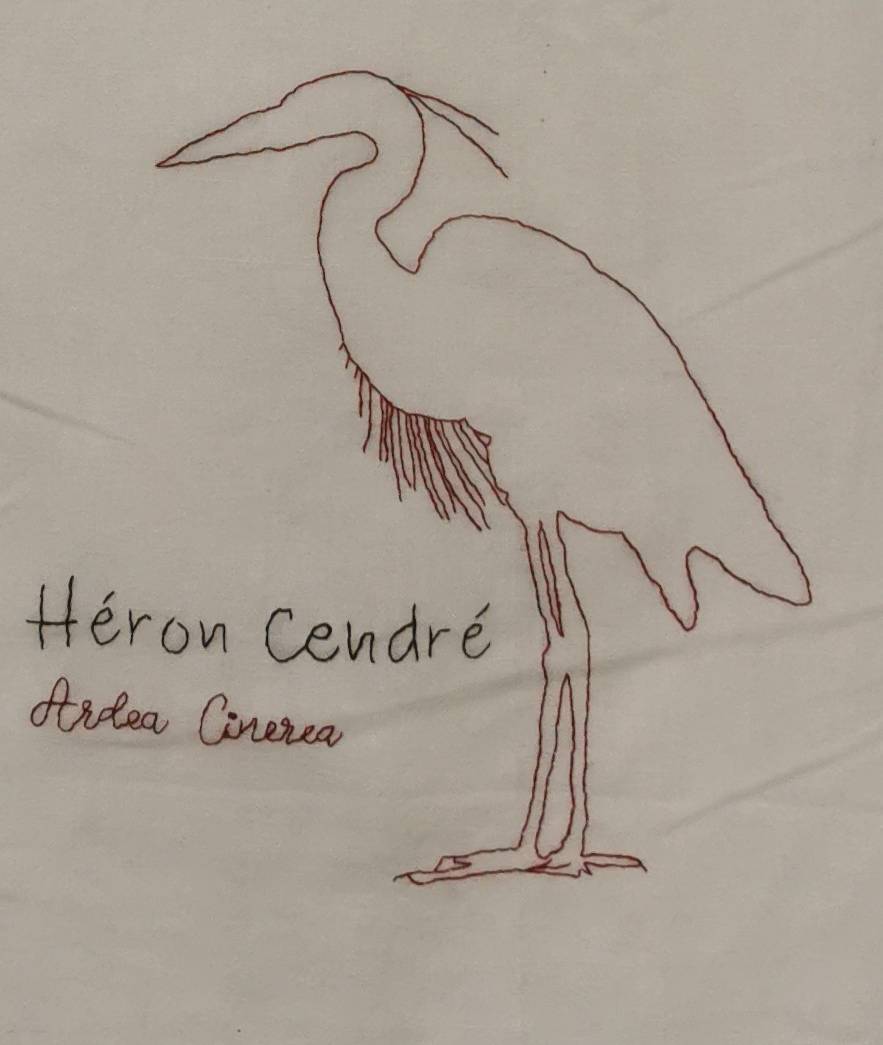 Héron Cendré
Ardea Cinerea